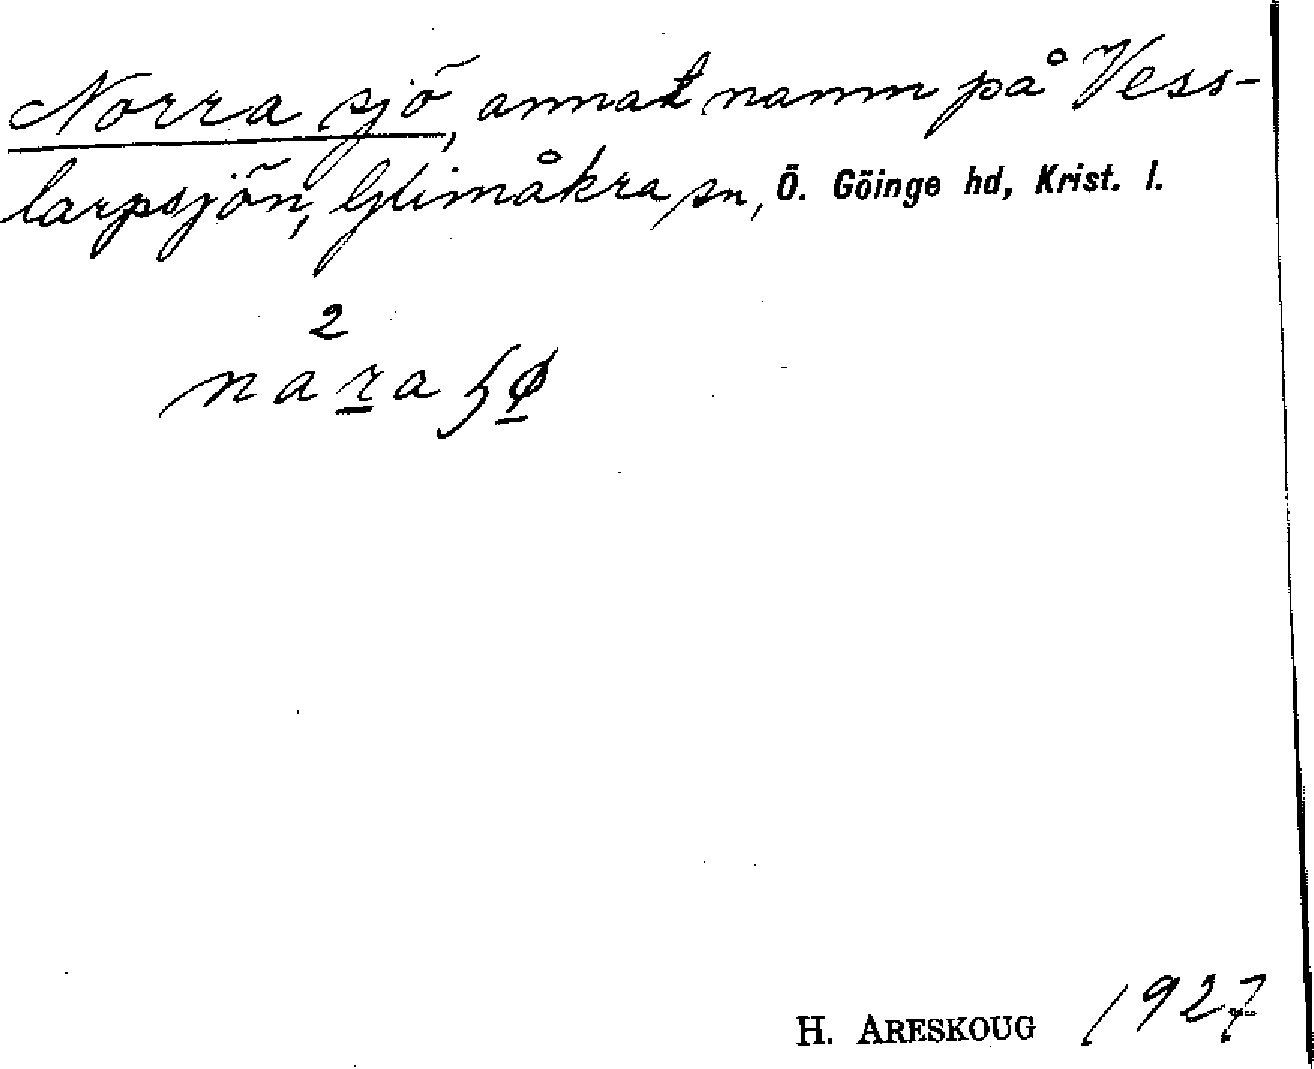 Norra sjö, annat namn på Vess-
larpsjön, Glimåkra sn, Ö. Göinge hd, Krist. l.
2
nara ɧø
H. ARESKOUG 1927